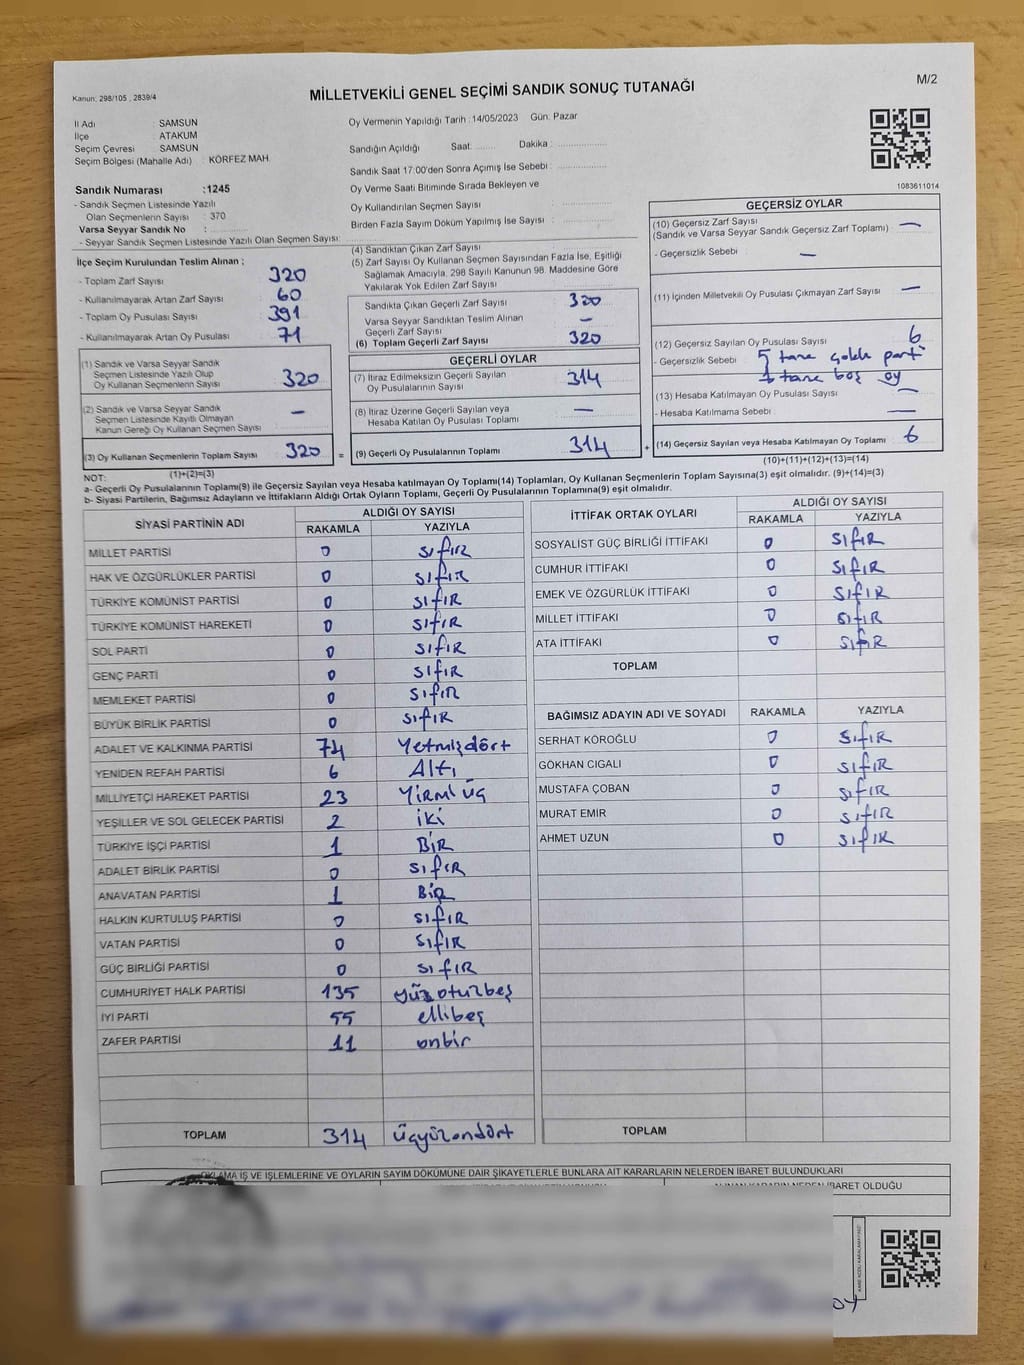 Kanun: 298/105 , 2839/4
MİLLETVEKİLİ GENEL SEÇİMİ SANDIK SONUÇ TUTANAĞI
M/2
İl Adı : SAMSUN
İlçe : ATAKUM
Seçim Çevresi : SAMSUN
Seçim Bölgesi (Mahalle Adı) : KÖRFEZ MAH.
Sandık Numarası :1245
- Sandık Seçmen Listesinde Yazılı
Olan Seçmenlerin Sayısı : 370
Varsa Seyyar Sandık No :
- Seyyar Sandık Seçmen Listesinde Yazılı Olan Seçmen Sayısı:
Oy Vermenin Yapıldığı Tarih :14/05/2023 Gün: Pazar
Sandığın Açıldığı Saat: Dakika :
Sandık Saat 17:00'den Sonra Açımış İse Sebebi :
Oy Verme Saati Bitiminde Sırada Bekleyen ve
Oy Kullandırılan Seçmen Sayısı :
Birden Fazla Sayım Döküm Yapılmış İse Sayısı :
1083611014
İlçe Seçim Kurulundan Teslim Alınan ;
- Toplam Zarf Sayısı : 320
- Kullanılmayarak Artan Zarf Sayısı : 60
- Toplam Oy Pusulası Sayısı : 391
- Kullanılmayarak Artan Oy Pusulası : 71
(1) Sandık ve Varsa Seyyar Sandık
Seçmen Listesinde Yazılı Olup
Oy Kullanan Seçmenlerin Sayısı : 320
(2) Sandık ve Varsa Seyyar Sandık
Seçmen Listesinde Kayıtlı Olmayan
Kanun Gereği Oy Kullanan Seçmen Sayısı : —
(3) Oy Kullanan Seçmenlerin Toplam Sayısı : 320
(1)+(2)=(3)
(4) Sandıktan Çıkan Zarf Sayısı :
(5) Zarf Sayısı Oy Kullanan Seçmen Sayısından Fazla İse, Eşitliği
Sağlamak Amacıyla, 298 Sayılı Kanunun 98. Maddesine Göre
Yakılarak Yok Edilen Zarf Sayısı :
Sandıkta Çıkan Geçerli Zarf Sayısı : 320
Varsa Seyyar Sandıktan Teslim Alınan
Geçerli Zarf Sayısı : —
(6) Toplam Geçerli Zarf Sayısı : 320
GEÇERLİ OYLAR
(7) İtiraz Edilmeksizin Geçerli Sayılan
Oy Pusulalarının Sayısı : 314
(8) İtiraz Üzerine Geçerli Sayılan veya
Hesaba Katılan Oy Pusulası Toplamı : —
= (9) Geçerli Oy Pusulalarının Toplamı : 314 +
GEÇERSİZ OYLAR
(10) Geçersiz Zarf Sayısı
(Sandık ve Varsa Seyyar Sandık Geçersiz Zarf Toplamı) : —
- Geçersizlik Sebebi : —
(11) İçinden Milletvekili Oy Pusulası Çıkmayan Zarf Sayısı : —
(12) Geçersiz Sayılan Oy Pusulası Sayısı : 6
- Geçersizlik Sebebi : 5 tane çoklu parti
1 tane boş oy
(13) Hesaba Katılmayan Oy Pusulası Sayısı : —
- Hesaba Katılmama Sebebi : —
(14) Geçersiz Sayılan veya Hesaba Katılmayan Oy Toplamı : 6
(10)+(11)+(12)+(13)=(14)
NOT:
a- Geçerli Oy Pusulalarının Toplamı(9) ile Geçersiz Sayılan veya Hesaba katılmayan Oy Toplamı(14) Toplamları, Oy Kullanan Seçmenlerin Toplam Sayısına(3) eşit olmalıdır. (9)+(14)=(3)
b- Siyasi Partilerin, Bağımsız Adayların ve İttifakların Aldığı Ortak Oyların Toplamı, Geçerli Oy Pusulalarının Toplamına(9) eşit olmalıdır.
SİYASİ PARTİNİN ADI ALDIĞI OY SAYISI
RAKAMLA YAZIYLA
MİLLET PARTİSİ 0 SIFIR
HAK VE ÖZGÜRLÜKLER PARTİSİ 0 SIFIR
TÜRKİYE KOMÜNİST PARTİSİ 0 SIFIR
TÜRKİYE KOMÜNİST HAREKETİ 0 SIFIR
SOL PARTİ 0 SIFIR
GENÇ PARTİ 0 SIFIR
MEMLEKET PARTİSİ 0 SIFIR
BÜYÜK BİRLİK PARTİSİ 0 SIFIR
ADALET VE KALKINMA PARTİSİ 74 Yetmişdört
YENİDEN REFAH PARTİSİ 6 Altı
MİLLİYETÇİ HAREKET PARTİSİ 23 Yirmi üç
YEŞİLLER VE SOL GELECEK PARTİSİ 2 iki
TÜRKİYE İŞÇİ PARTİSİ 1 BİR
ADALET BİRLİK PARTİSİ 0 SIFIR
ANAVATAN PARTİSİ 1 BİR
HALKIN KURTULUŞ PARTİSİ 0 SIFIR
VATAN PARTİSİ 0 SIFIR
GÜÇ BİRLİĞİ PARTİSİ 0 SIFIR
CUMHURİYET HALK PARTİSİ 135 yüzotuzbeş
İYİ PARTİ 55 ellibeş
ZAFER PARTİSİ 11 onbir
TOPLAM 314 üçyüzondört
İTTİFAK ORTAK OYLARI ALDIĞI OY SAYISI
RAKAMLA YAZIYLA
SOSYALİST GÜÇ BİRLİĞİ İTTİFAKI 0 SIFIR
CUMHUR İTTİFAKI 0 SIFIR
EMEK VE ÖZGÜRLÜK İTTİFAKI 0 SIFIR
MİLLET İTTİFAKI 0 SIFIR
ATA İTTİFAKI 0 SIFIR
TOPLAM
BAĞIMSIZ ADAYIN ADI VE SOYADI RAKAMLA YAZIYLA
SERHAT KÖROĞLU 0 SIFIR
GÖKHAN CIGALI 0 SIFIR
MUSTAFA ÇOBAN 0 SIFIR
MURAT EMİR 0 SIFIR
AHMET UZUN 0 SIFIR
TOPLAM
İŞ VE İŞLEMLERİNE VE OYLARIN SAYIM DÖKÜMÜNE DAİR ŞİKAYETLERLE BUNLARA AİT KARARLARIN NELERDEN İBARET BULUNDUKLARI
ALINAN KARARIN NEDEN İBARET OLDUĞU